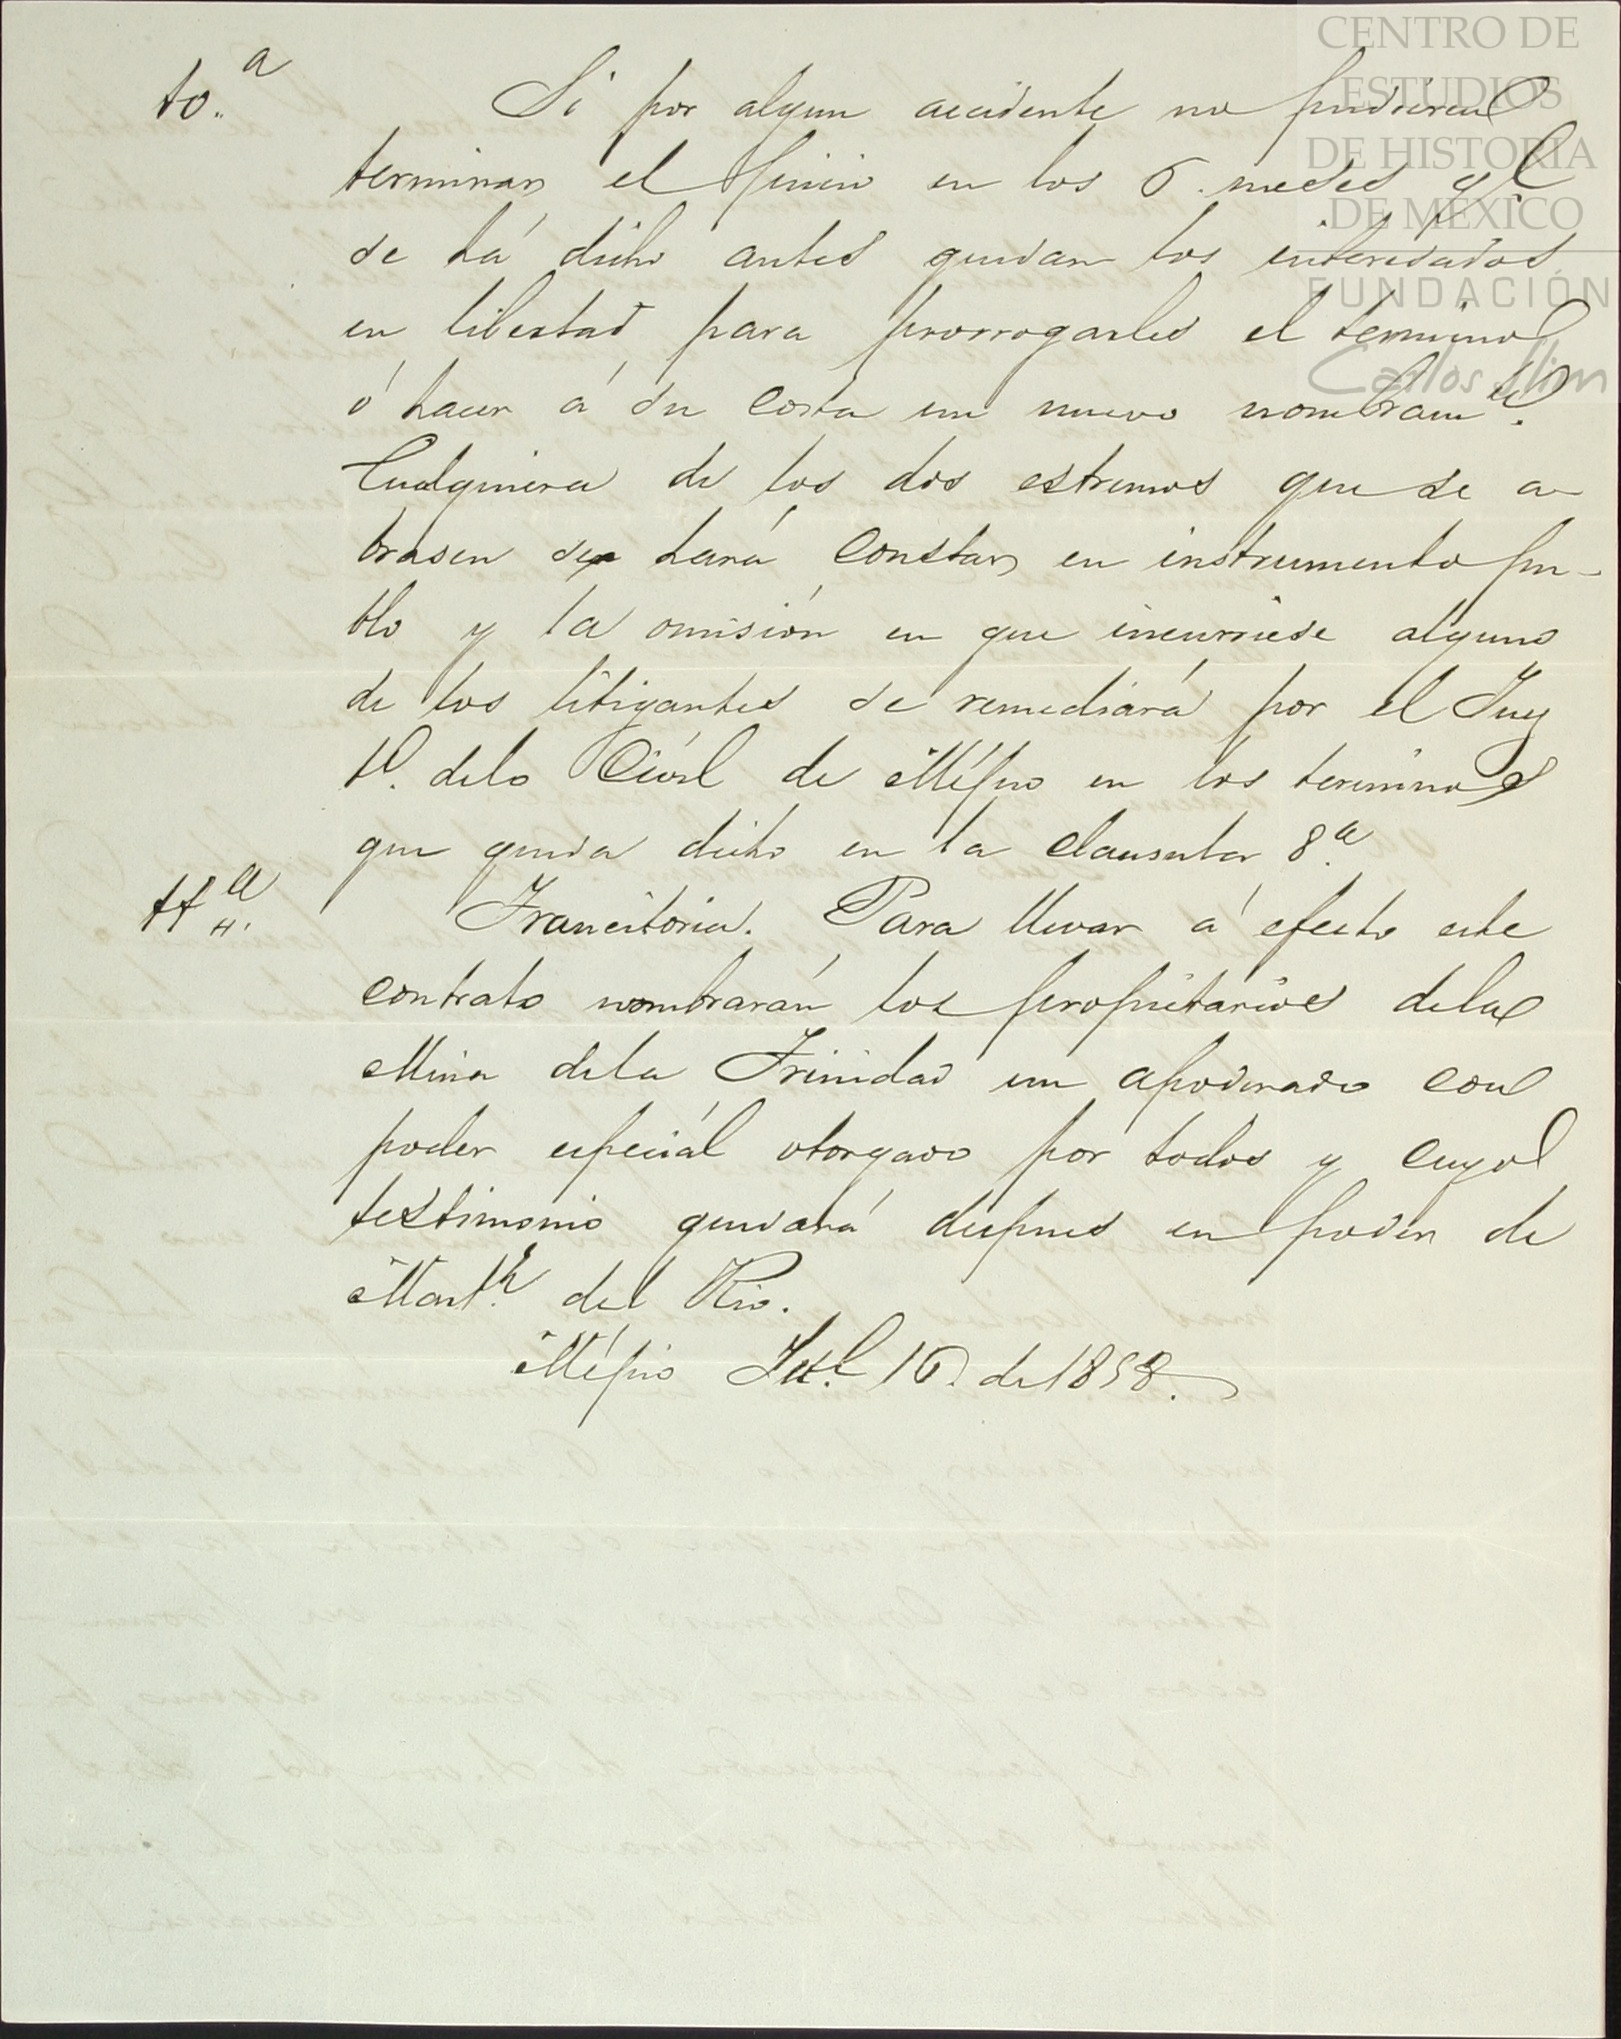 CENTRO DE
ESTUDIOS
DE HISTORIA
DE MÉXICO
FUNDACIÓN
Carlos Slim
10.ª Si por algun accidente no pudieren
terminar el juicio en los 6. meses q.e
se há dicho antes quedan los interesados
en libertad para prorrogarles el termino
ó hacer á su costa un nuevo nombram.to
Cualquiera de los dos estremos que se a-
brasen se hará constar en instrumento pu-
blo y la omisión en que incurriese alguno
de los litigantes se remediará por el Juez
1º. delo Civil de Méjico en los terminos
que queda dicho en la clausula 8.ª
11.ª Trancitoria. Para llevar á efecto este
contrato nombrarán los propietarios dela
Mina dela Trinidad un apoderado con
poder especiál otorgado por todos y cuyo
testimonio quedará despues en poder de
Mart.z del Rio.
Méjico Jul. 16. de 1858.